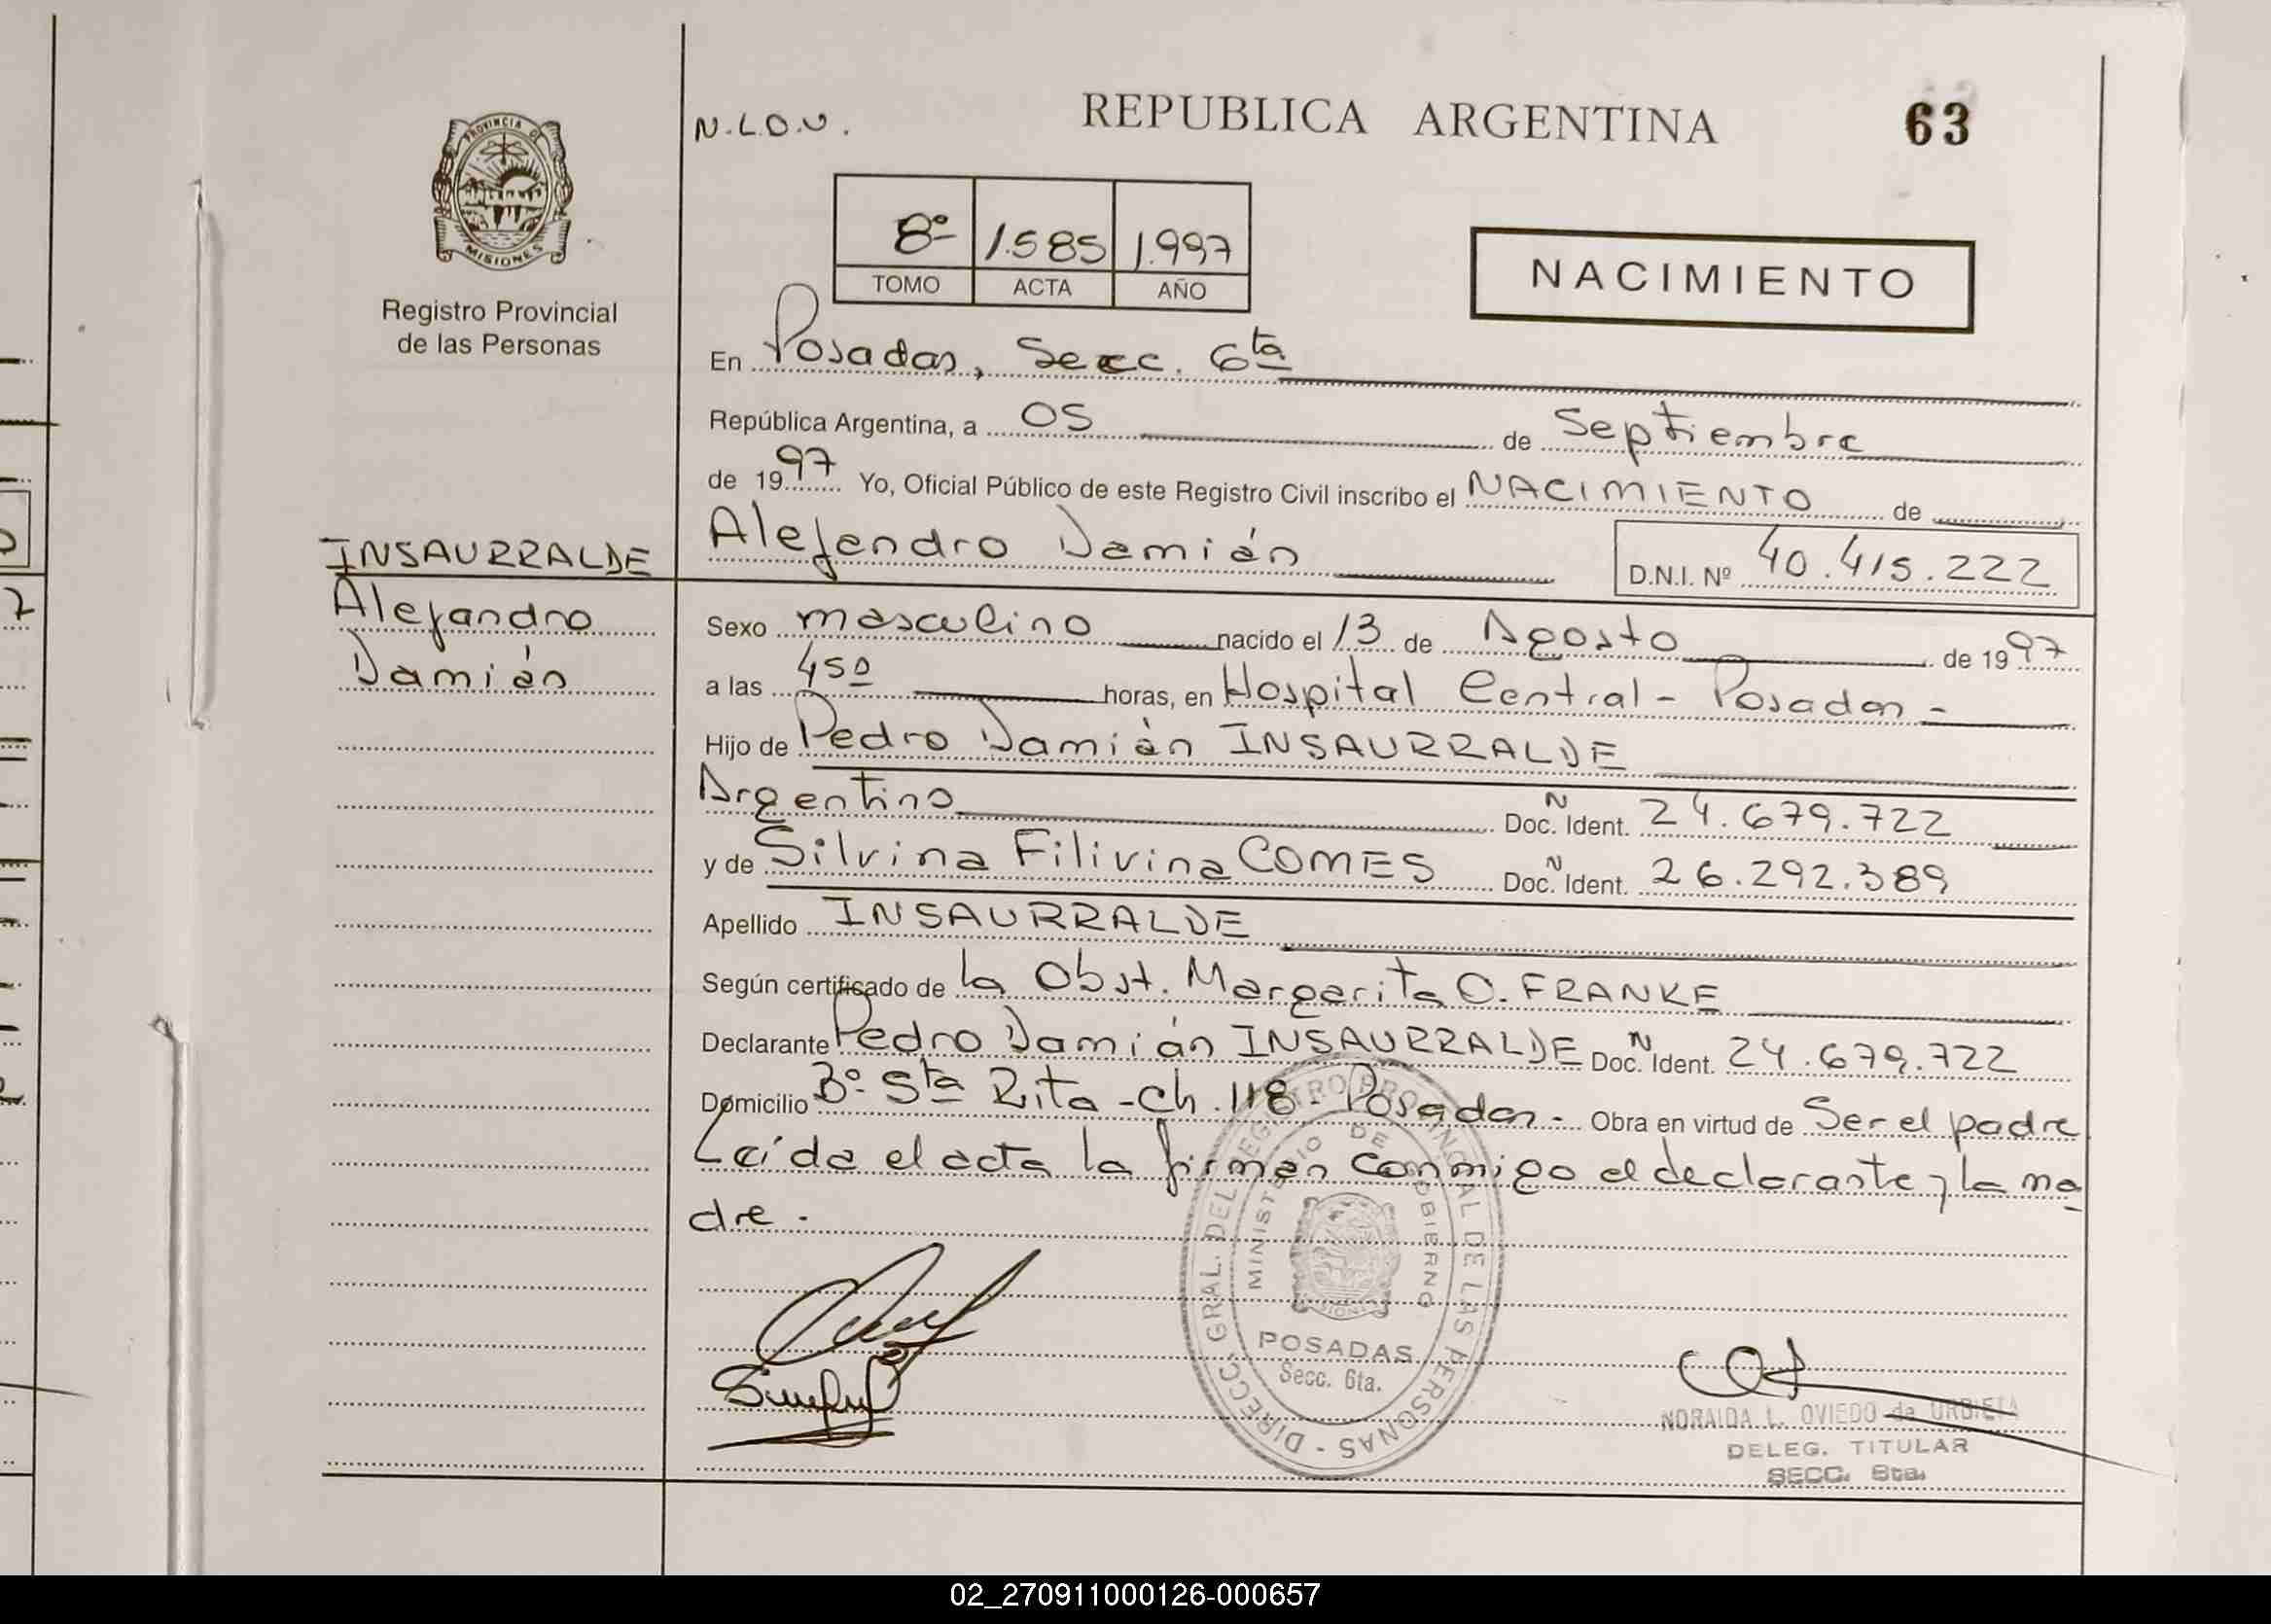 N.L.O.U.
REPUBLICA ARGENTINA
63
PROVINCIA DE
MISIONES
Registro Provincial
de las Personas
8º 1.585 1.997
TOMO ACTA AÑO
NACIMIENTO
En Posadas, Secc. 6ta
República Argentina, a 05 de Septiembre
de 1997 Yo, Oficial Público de este Registro Civil inscribo el NACIMIENTO de
Alejandro Damián D.N.I. Nº 40.415.222
INSAURRALDE
Alejandro
Damián
Sexo masculino nacido el 13 de Agosto de 1997
a las 450 horas, en Hospital Central - Posadas -
Hijo de Pedro Damián INSAURRALDE
Argentino Doc. Ident. N 24.679.722
y de Silvina Filivina COMES Doc. Ident. N 26.292.389
Apellido INSAURRALDE
Según certificado de la Obst. Margarita O. FRANKE
Declarante Pedro Damián INSAURRALDE Doc. Ident. N 24.679.722
Domicilio Bº Sta Rita - Ch. 118 - Posadas - Obra en virtud de Ser el padre
Leída el acta la firman conmigo el declarante y la ma
dre.
DIRECC. GRAL. DEL REGISTRO PROVINCIAL DE LAS PERSONAS -
MINISTERIO DE GOBIERNO
POSADAS
Secc. 6ta.
NORAIDA L. OVIEDO de URBIETA
DELEG. TITULAR
SECC. 6ta.
02_270911000126-000657